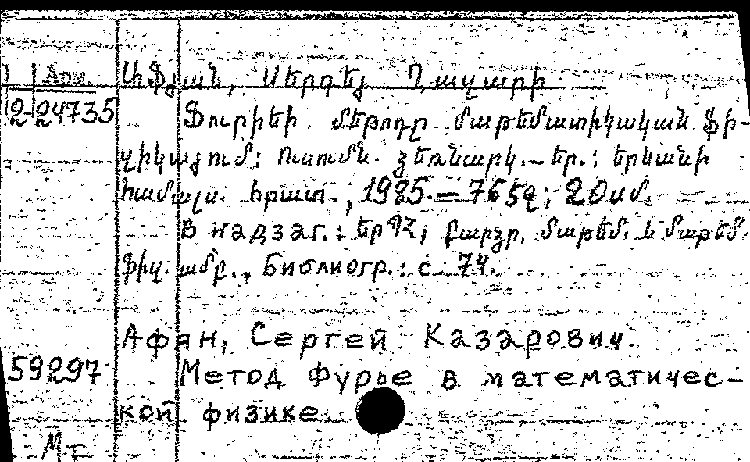 Աֆյան, Սերգեյ Ղազարի
2-24735 Ֆուրիեի մեթոդը մաթեմատիկական ֆի-
զիկայում: Ուսումն. ձեռնարկ.— Եր.: Երևանի
համալս. հրատ., 1985.— 765գ; 20սմ.
В надзаг.: ԵրՊՀ; բարձր. մաթեմ. և մաթեմ.
ֆիզ. ամբ., Библиогр.: с. 74.
Афян, Сергей Казарович.
59297 Метод Фурье в математичес-
кой физике